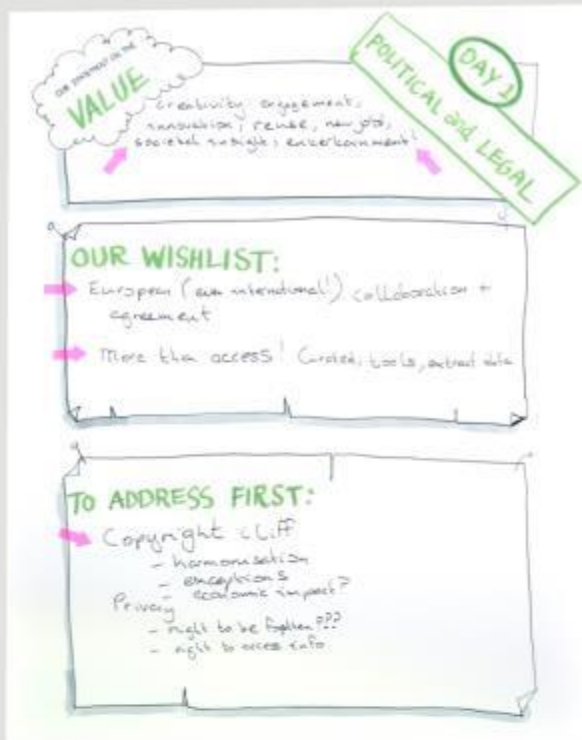 OUR STATEMENT ON THE
VALUE
DAY 1
POLITICAL and LEGAL
Creativity, engagement,
innovation, reuse, new jobs,
societal insight, entertainment!
OUR WISHLIST:
European (even international!) collaboration +
agreement
More than access! Curated, tools, extract data
TO ADDRESS FIRST:
Copyright cliff
- harmonisation
- exceptions
- economic impact?
Privacy
- right to be forgotten???
- right to access info